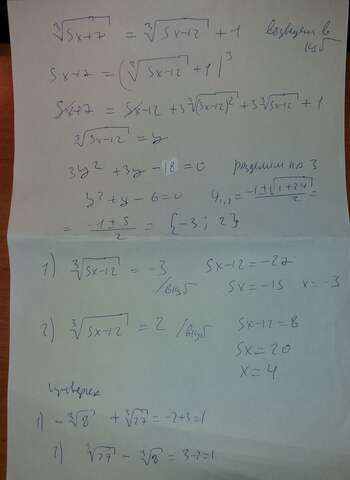 ∛5x+7 = ∛5x-12 + 1 возведем в куб
5x+7 = (∛5x-12 + 1)³
5x+7 = 5x-12 + 3∛(5x-12)² + 3∛5x-12 + 1
∛5x-12 = y
3y² + 3y - 18 = 0 разделим на 3
y² + y - 6 = 0 y₁,₂ = -1±√1+24 / 2 =
= -1±5 / 2 = {-3; 2}
1) ∛5x-12 = -3 /в куб 5x-12 = -27
5x = -15 x = -3
2) ∛5x-12 = 2 /в куб 5x-12 = 8
5x = 20
x = 4
проверка
1) -∛8 + ∛27 = -2+3 = 1
2) ∛27 - ∛8 = 3-2 = 1